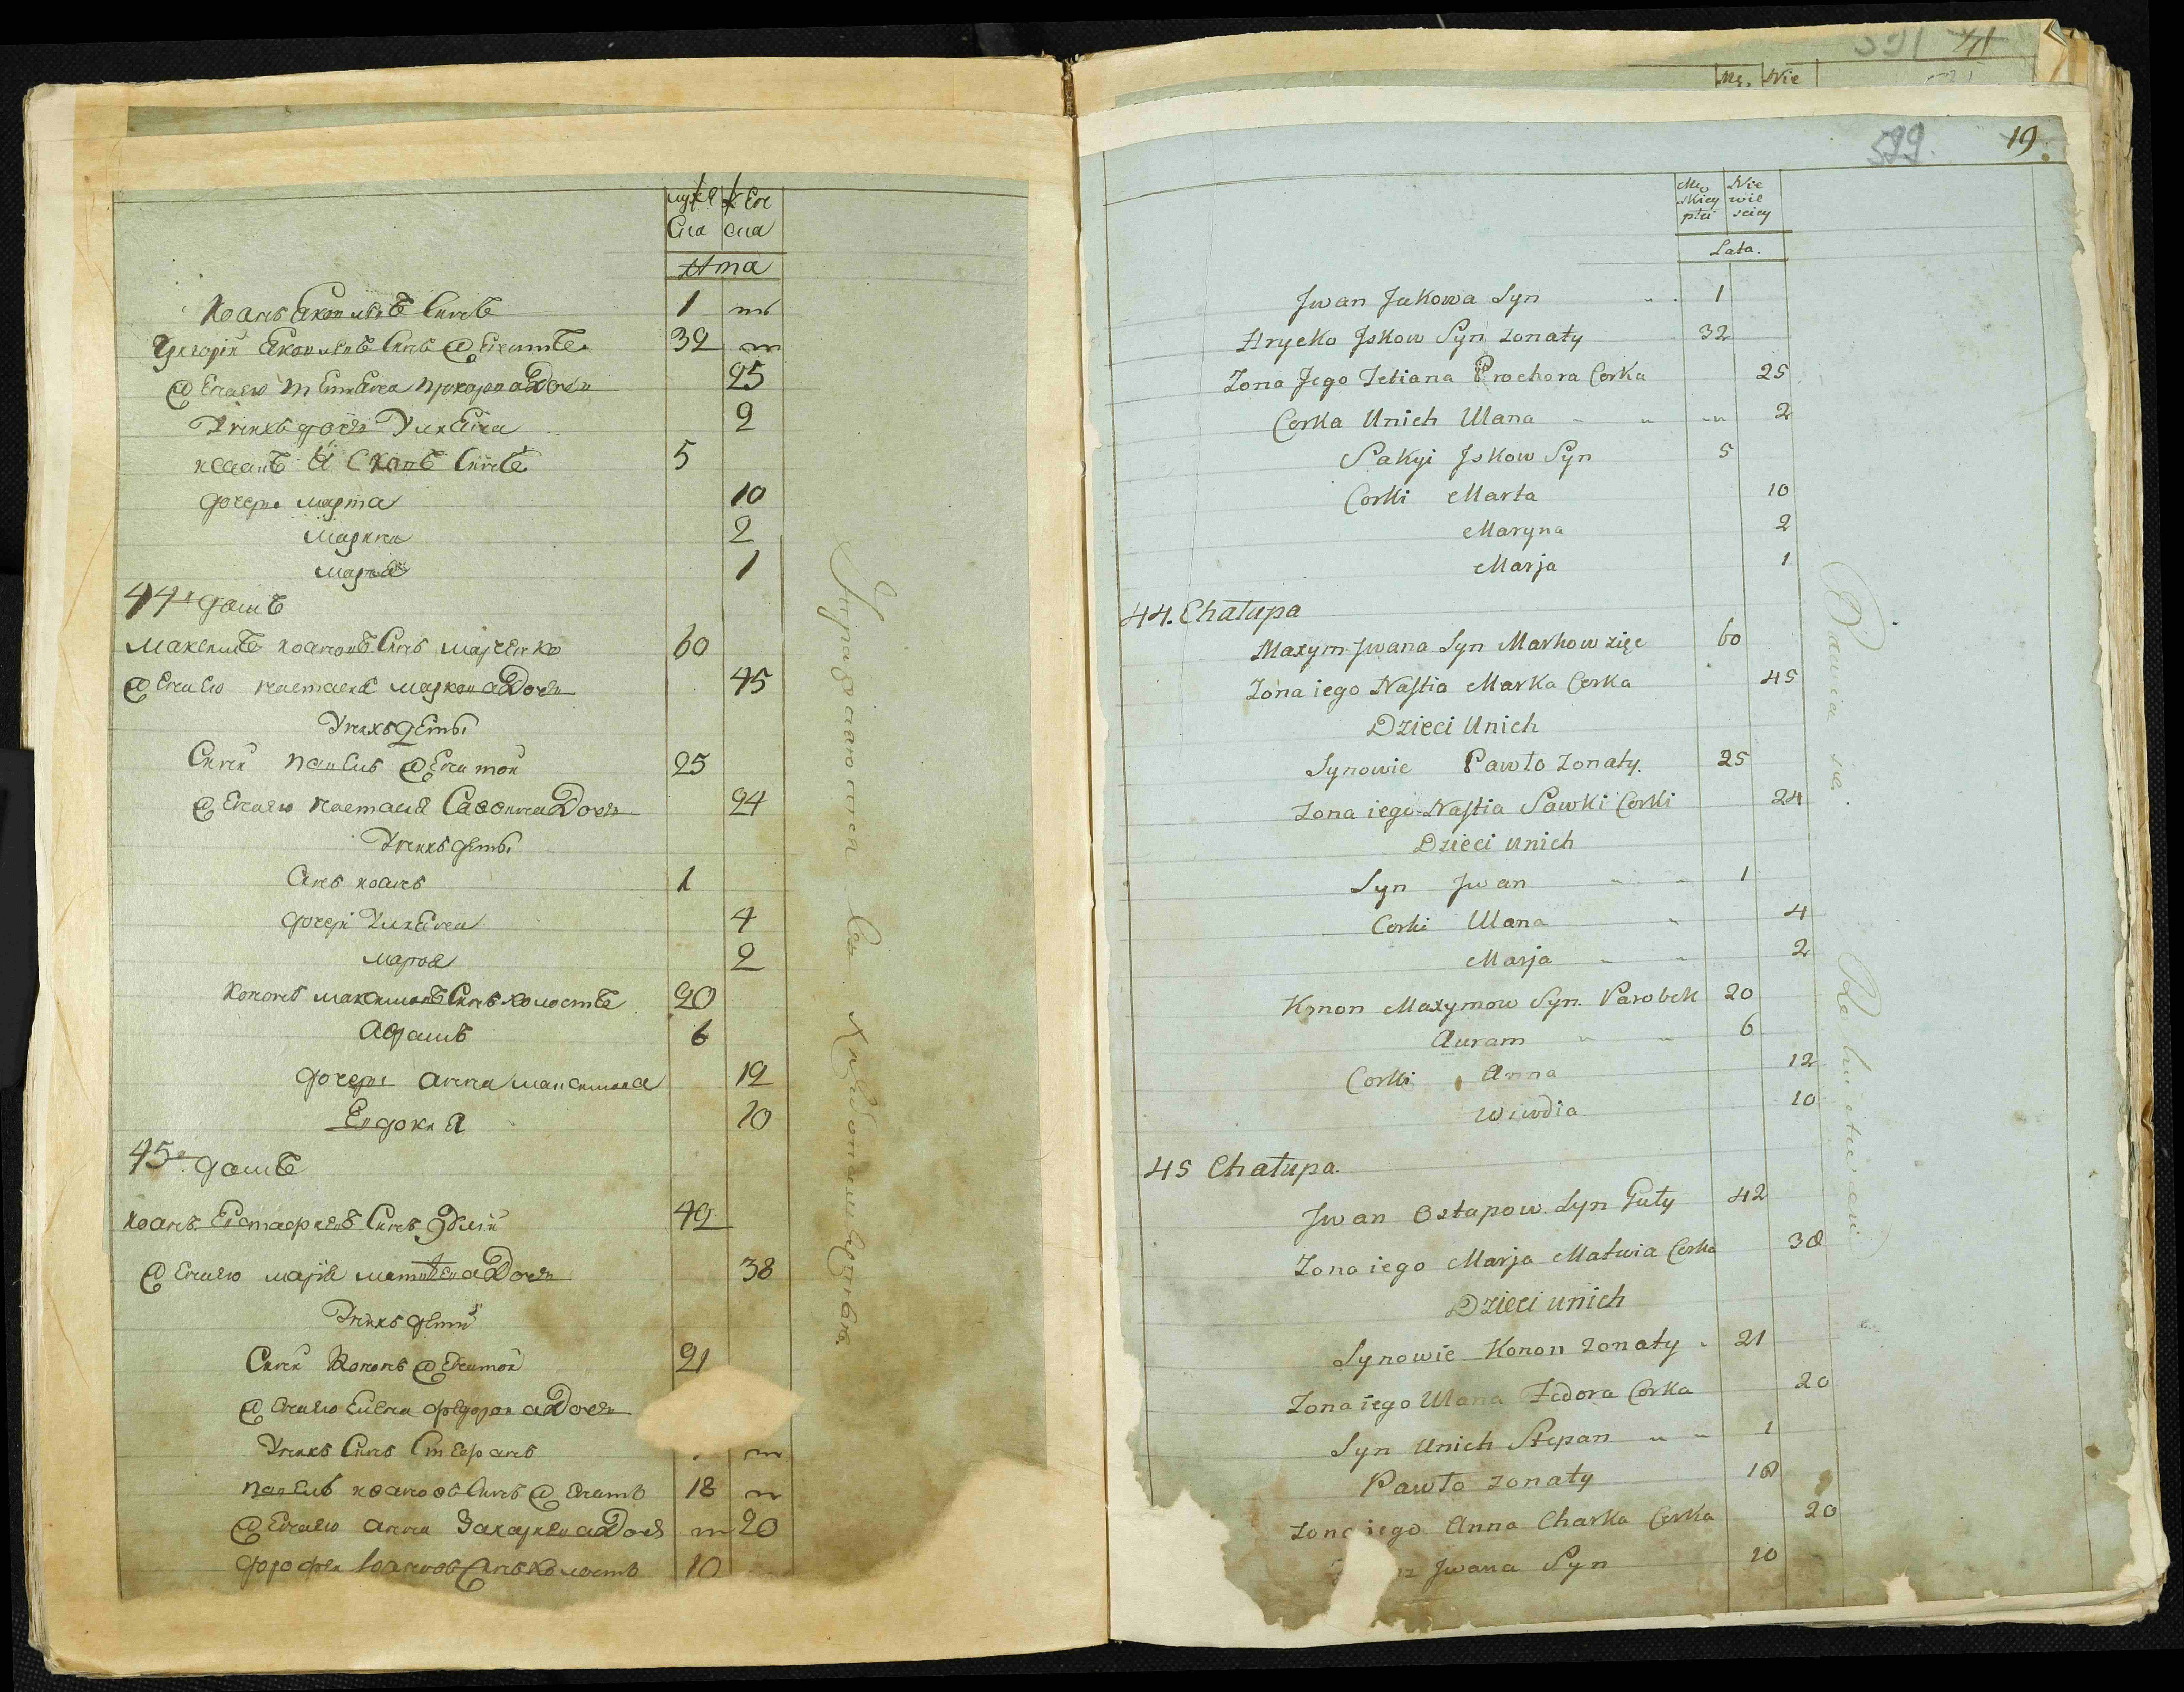 муже
ска
жен
ска
лѣта
Иванъ Яковлевъ Сынъ 1
Григорій Яковлевъ Сынъ женатъ 32
Женаего Тетіяна Прохорова Дочь 25
Унихъ дочь Уліяна 2
Исакій Яковъ Сынъ 5
дочери марта 10
марина 2
марія 1
44й домъ
максимъ ивановъ Сынъ 60
Женаего настасія маркова Дочь 45
Унихъ дети
Сыни павелъ Женатой 25
Женаего настасія Савкина Дочь 24
Унихъ дети
Сынъ иванъ 1
дочери Уліяна 4
марія 2
кононъ максимовъ Сынъ холостъ 20
Аврамъ 6
дочери анна максимова 12
Евдокия 10
45й домъ
иванъ Естафиевъ Сынъ 42
Женаего марія матвѣева Дочь 38
Унихъ дети
Сыни Кононъ Женатой 21
Женаего Елена федорова Дочь
Унихъ Сынъ Стефанъ
павелъ ивановъ Сынъ Женатъ 18
Женаего анна Захариева Дочь 20
дорофей Ивановъ Сынъ Холостъ 10
599. 19.
Mę
skiey
płci
Nie
wie
sciey
Lata.
Jwan Jakowa Syn 1
Hrycko Jskow Syn zonaty 32
Zona Jego Tetiana Prochora Corka 25
Corka Unich Ulana 2
Sakyi Jskow Syn 5
Corki Marta 10
Maryna 2
Marja 1
44. Chałupa
Maxym Jwana Syn Markow zięc 60
Zona iego Nastia Marka Corka 45
Dzieci Unich
Synowie Pawło zonaty. 25
Zona iego Nastia Sawki Corki 24
Dzieci unich
Syn Jwan 1
Corki Ulana 4
Marja 2
Konon Maxymow Syn. Parobek 20
Auram 6
Corki Anna 12
Wiwdia 10
45 Chałupa.
Jwan Ostapow. Syn Guły 42
Zona iego Marja Matwia Corka 38
Dzieci unich
Synowie Konon zonaty 21
Zona iego Ulana Fedora Corka 20
Syn Unich Stepan 1
Pawło zonaty 18
Zona iego Anna Charka Corka 20
Jwana Syn 10
Bawia się.